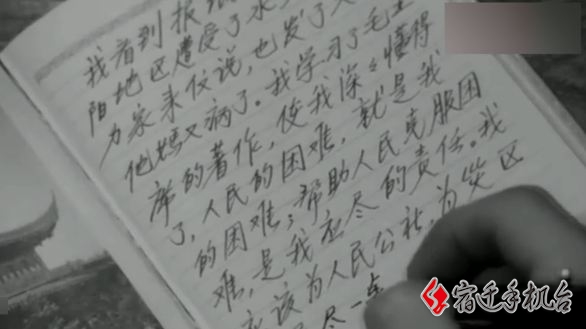 我看到报
阳地区遭受了水
力家来仅说，也发了
他妈又病了。我学习了毛主
席的著作，使我深々懂得
了，人民的困难，就是我
的困难；帮助人民克服困
难，是我应尽的责任。我
应该为人民公社，为灾区
尽一点
宿迁手机台